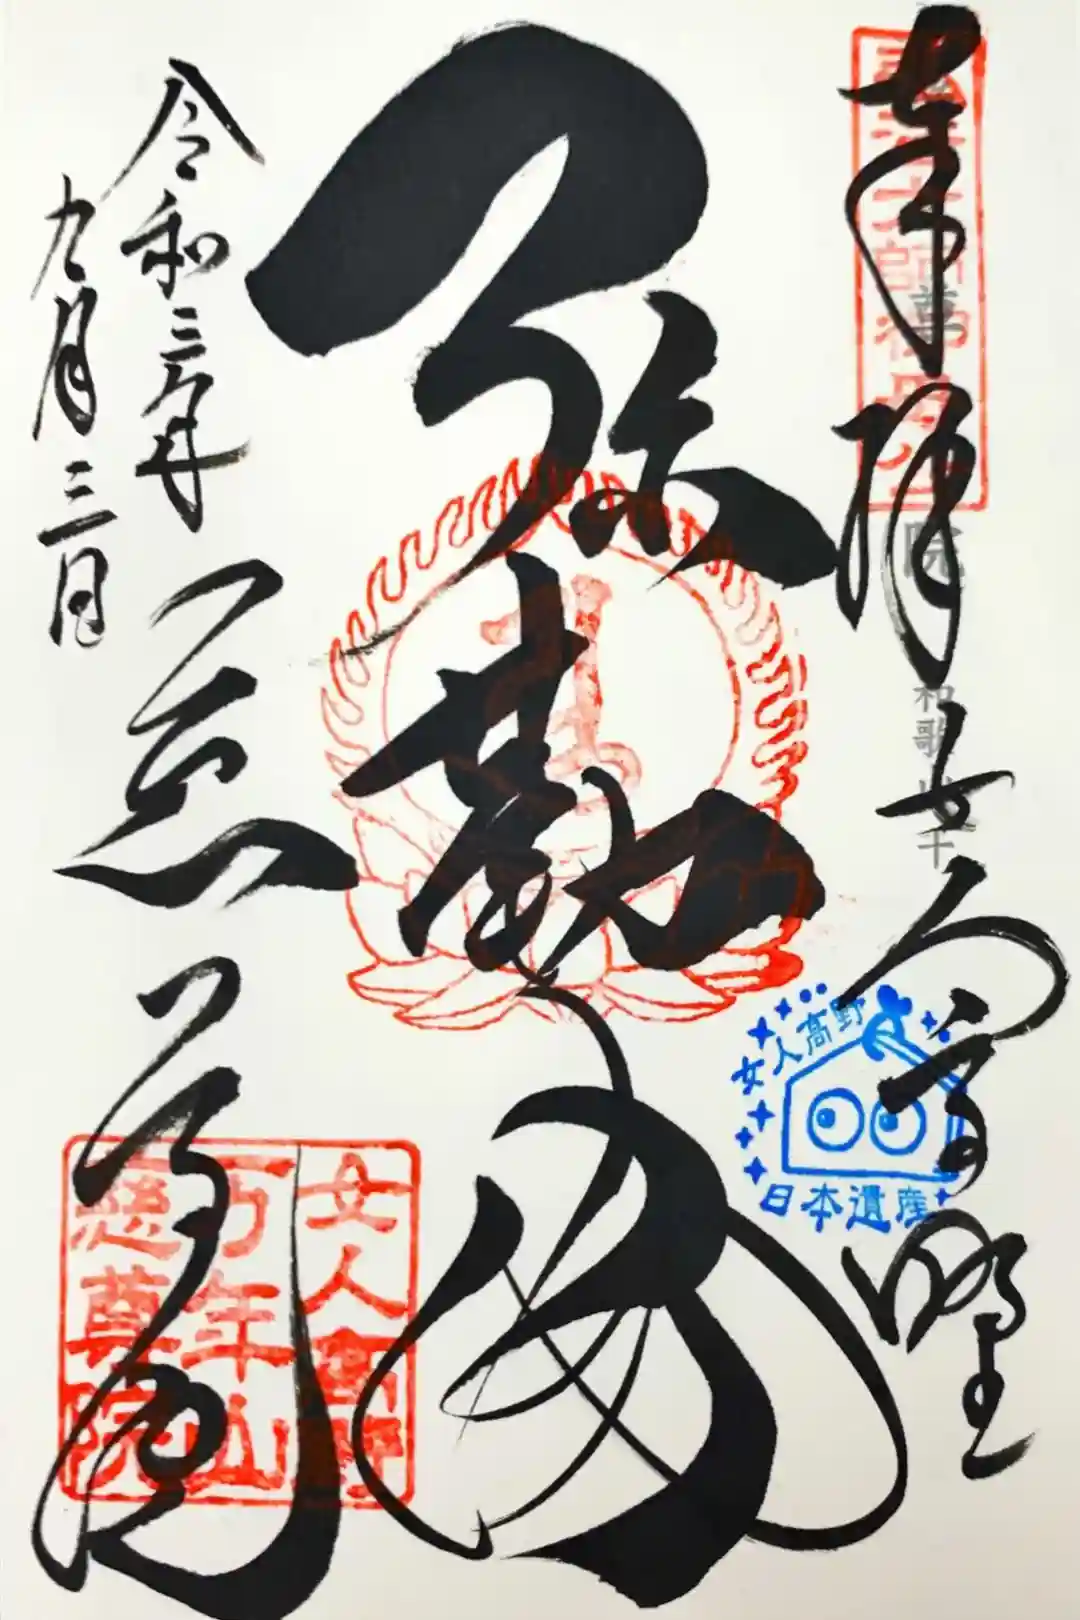 奉拝
女人高野
弥勒佛
令和三年
九月三日
慈尊院
弘法大師御母公
女人高野
万年山
慈尊院
女人高野
日本遺産
尊
院
和歌